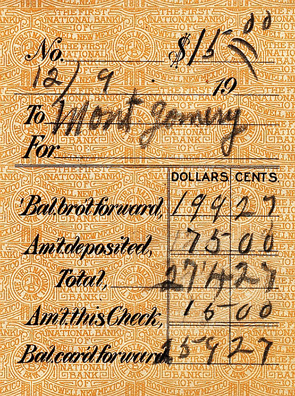 No. $15 00
12/9 19
To Mont gomery
For
DOLLARS CENTS
Bal. bro't forward, 199 27
Am't. deposited, 75 00
Total, 274 27
Am't. this Check, 15 00
Bal. car'd forward 259 27